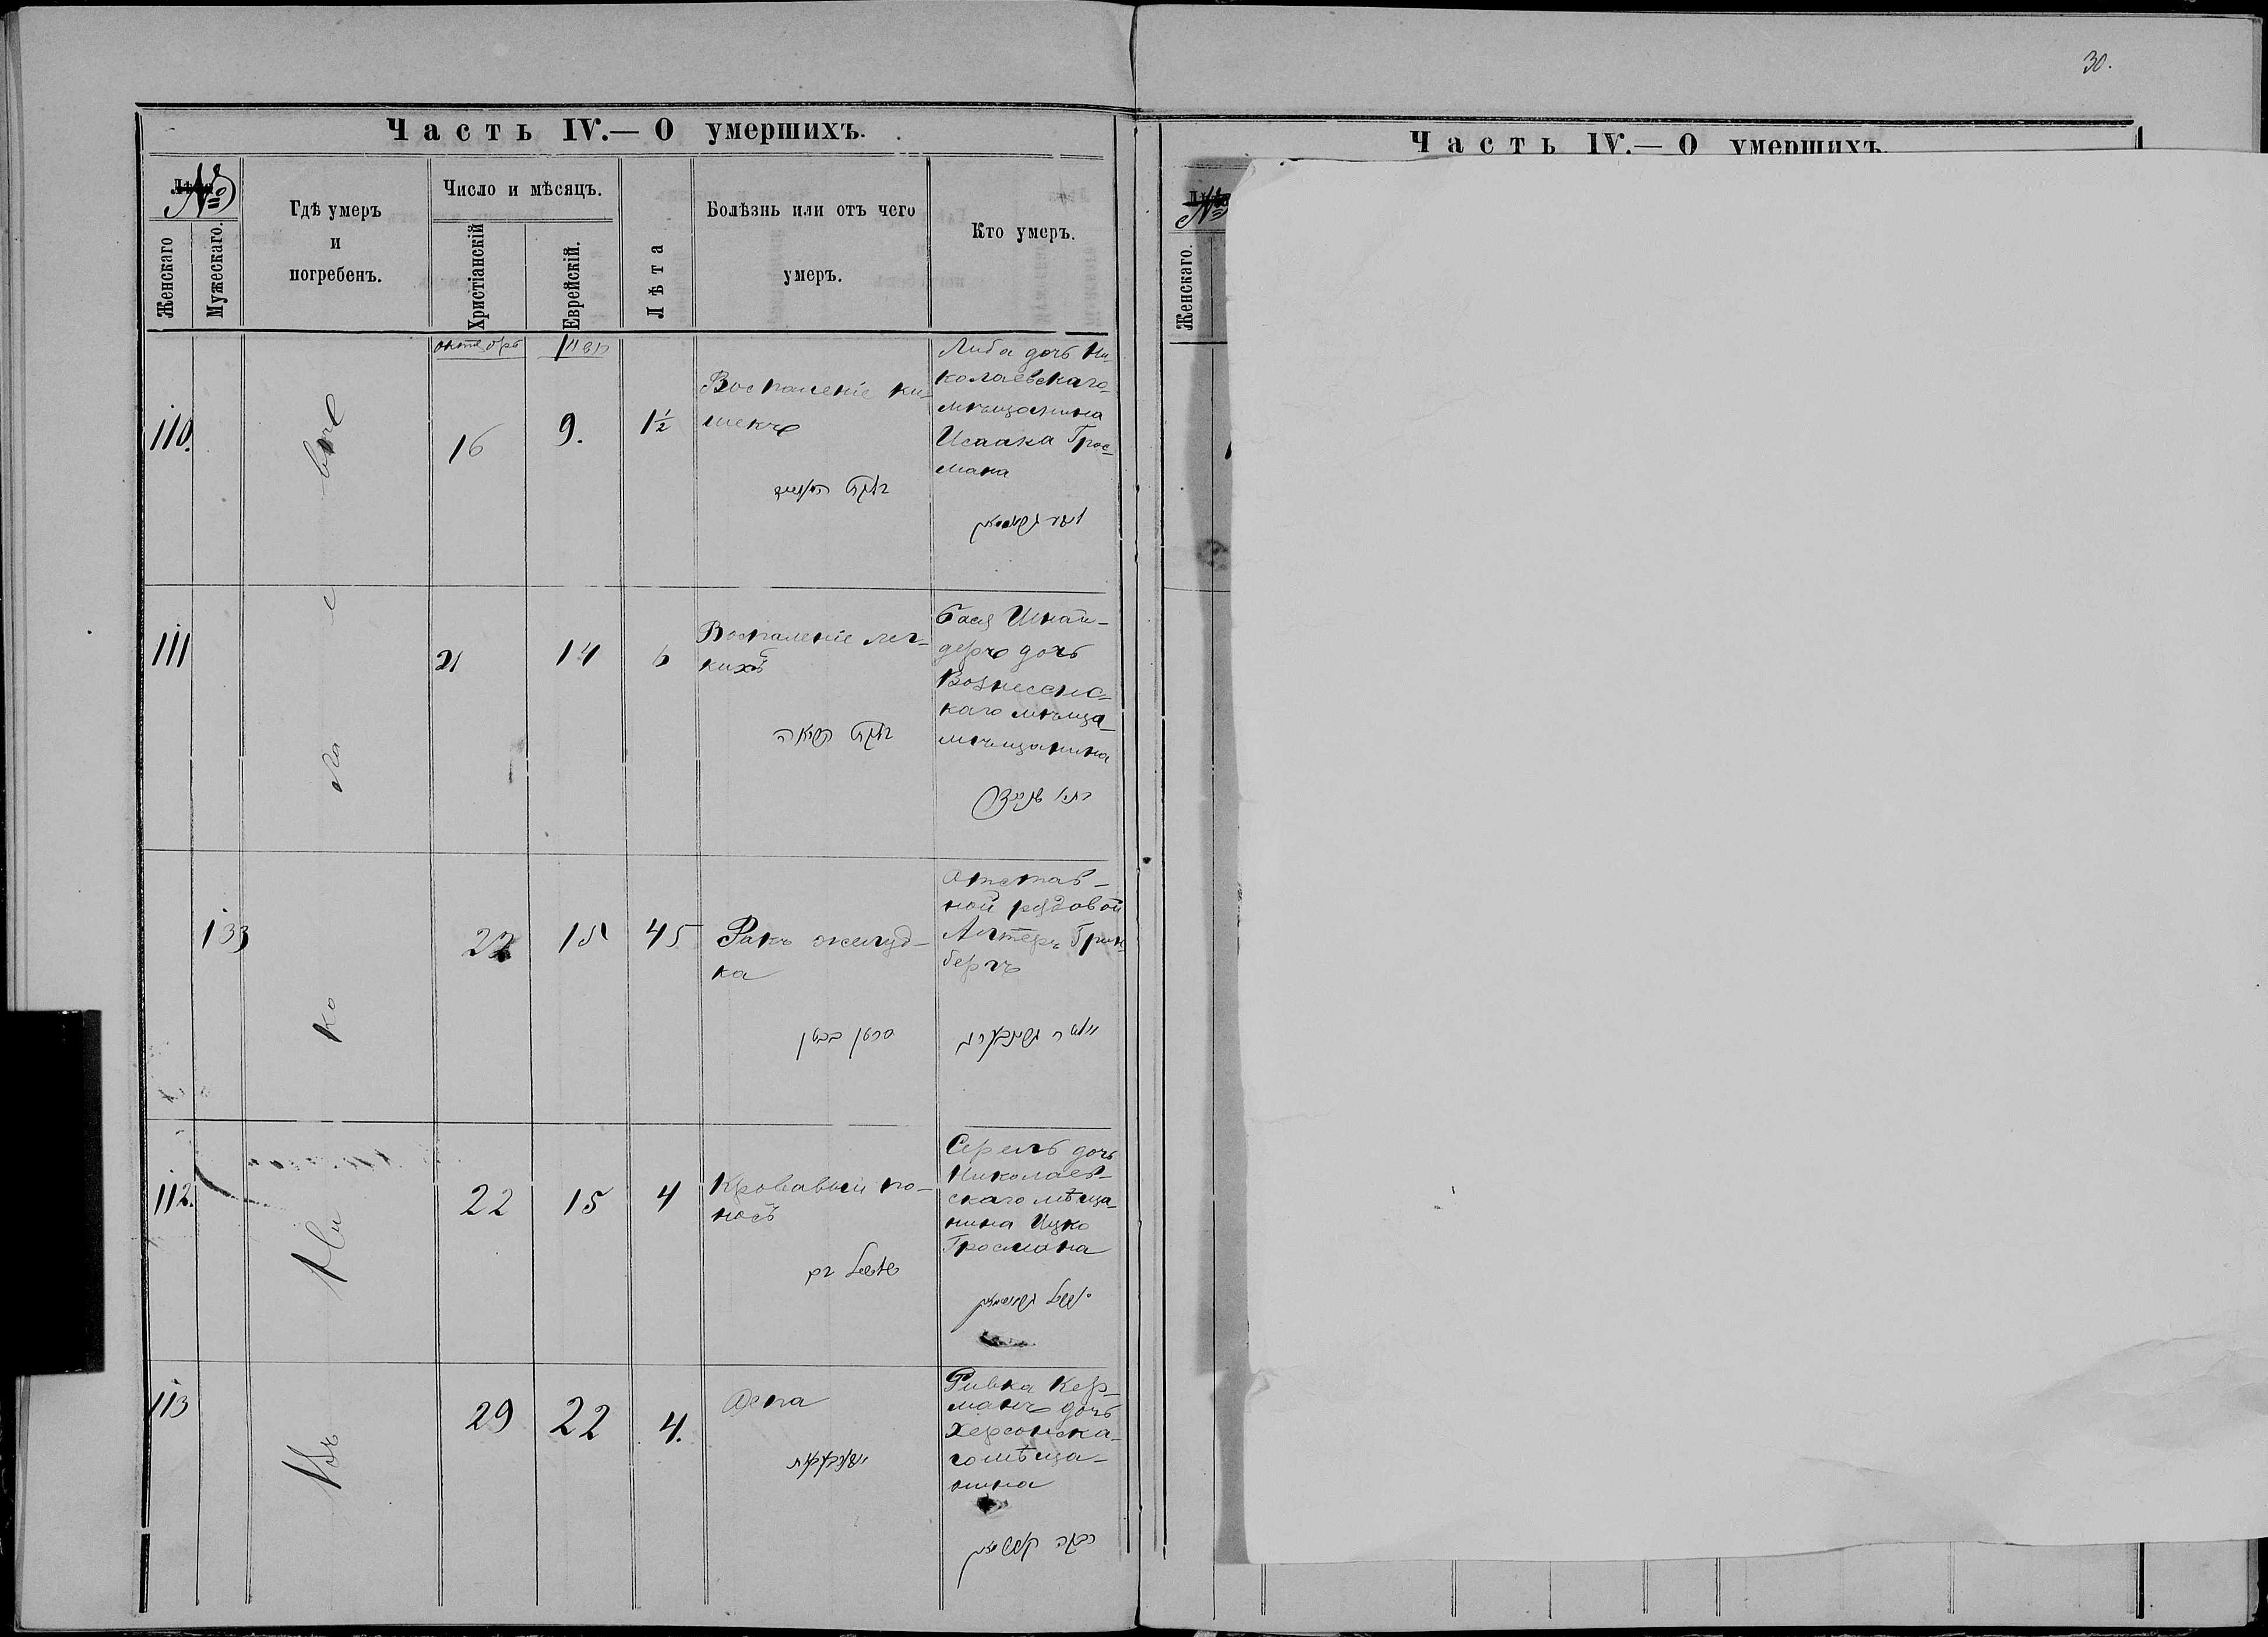 30.
Часть IV.— О умершихъ.
№
Женскаго
Мужескаго.
Гдѣ умеръ
и
погребенъ.
Число и мѣсяцъ.
Христіанскій
Еврейскій.
Лѣта
Болѣзнь или отъ чего
умеръ.
Кто умеръ.
октября
110.
16
9.
1½
Воспаленіе ки-
шекъ
Либа дочь Ни-
колаевскаго
мѣщанина
Исаака Грос-
мана
111
21
14
6
Воспаленіе лег-
кихъ
Бася Шнай-
деръ дочь
Вознесенс-
каго мѣща
мѣщанина
133
22
15
45
Ракъ желуд-
ка
סרטן בבטן
Отстав-
ной рядовой
Алтеръ Грин-
бергъ
112.
22
15
4
Кровавый по-
носъ
שלשול דם
Серель дочь
Николаев-
скаго мѣща-
нина Ицко
Гросмана
113
29
22
4.
Оспа
Ривка Кер-
манъ дочь
Херсонска-
го мѣща-
нина
Въ Николаевѣ
Часть IV.— О умершихъ.
№
Женскаго.